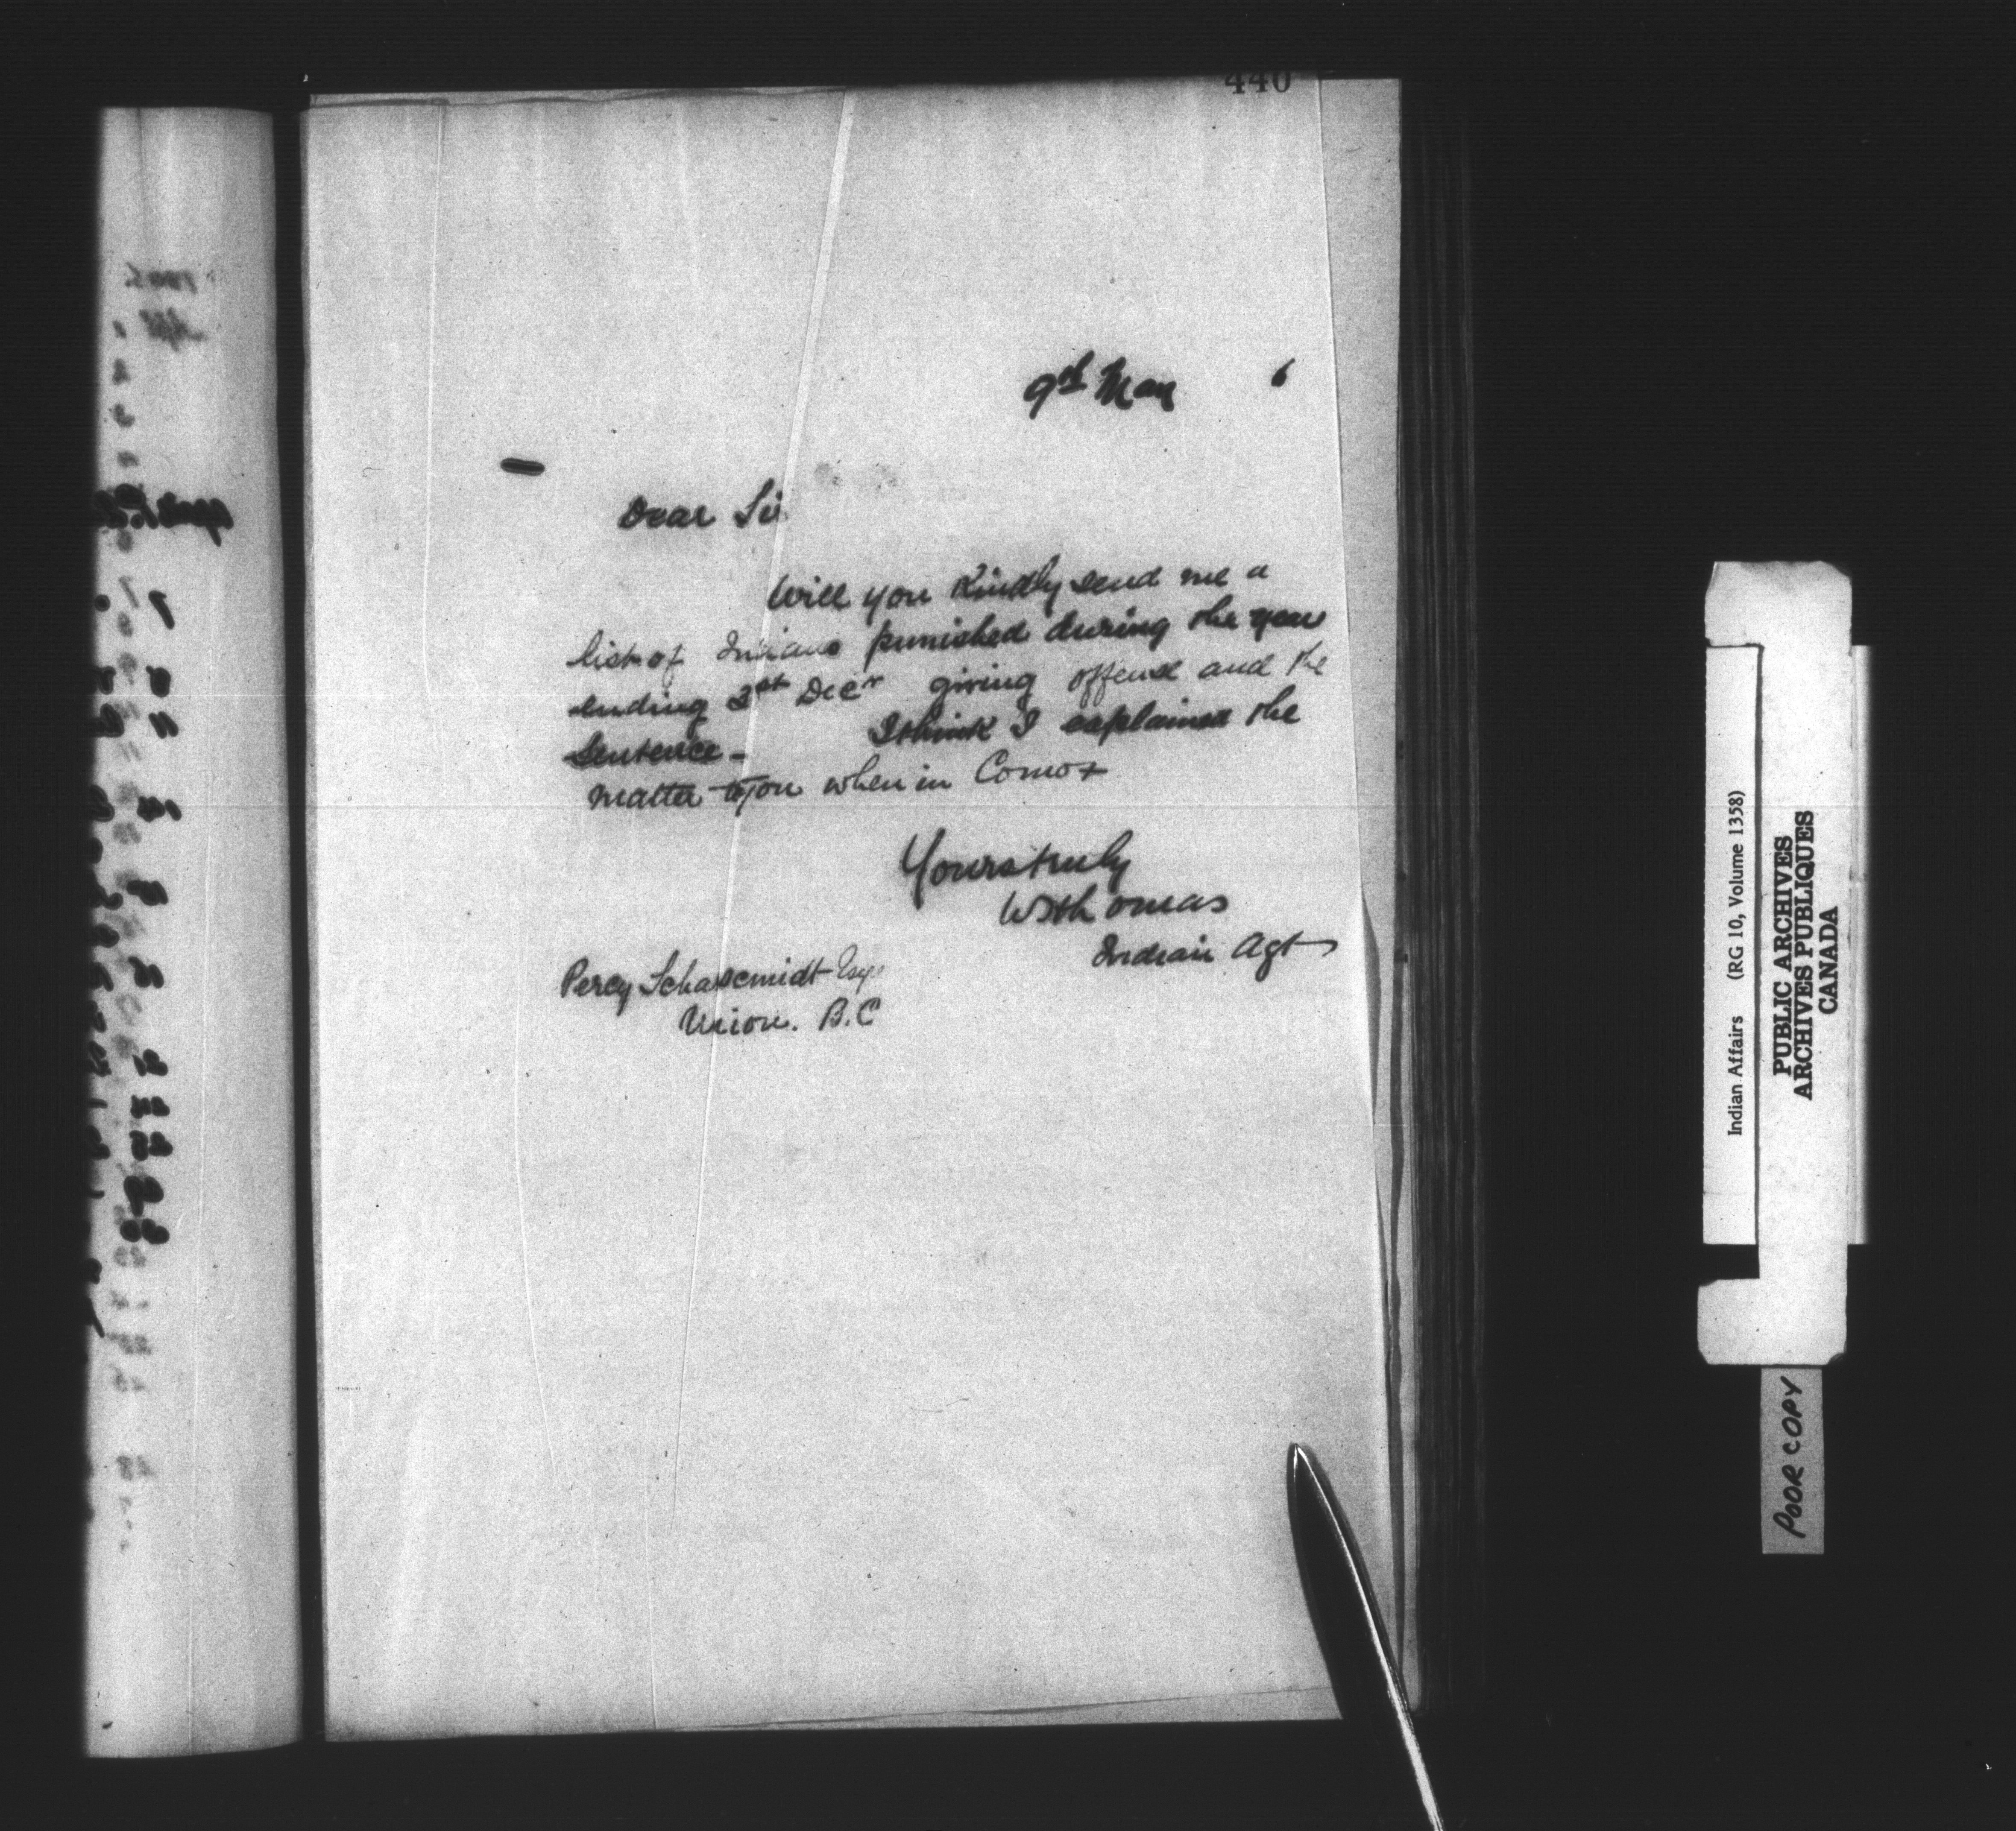 440
9th Mar 6
Dear Sir
Will you Kindly send me a
list of Indians punished during the year
ending 3st Decr giving offence and the
Sentence - I think I explained the
matter to you when in Comox
Yours truly
Indian Agt
Percy Esq
Union. B.C
Indian Affairs (RG 10, Volume 1358)
PUBLIC ARCHIVES
ARCHIVES PUBLIQUES
CANADA
POOR COPY